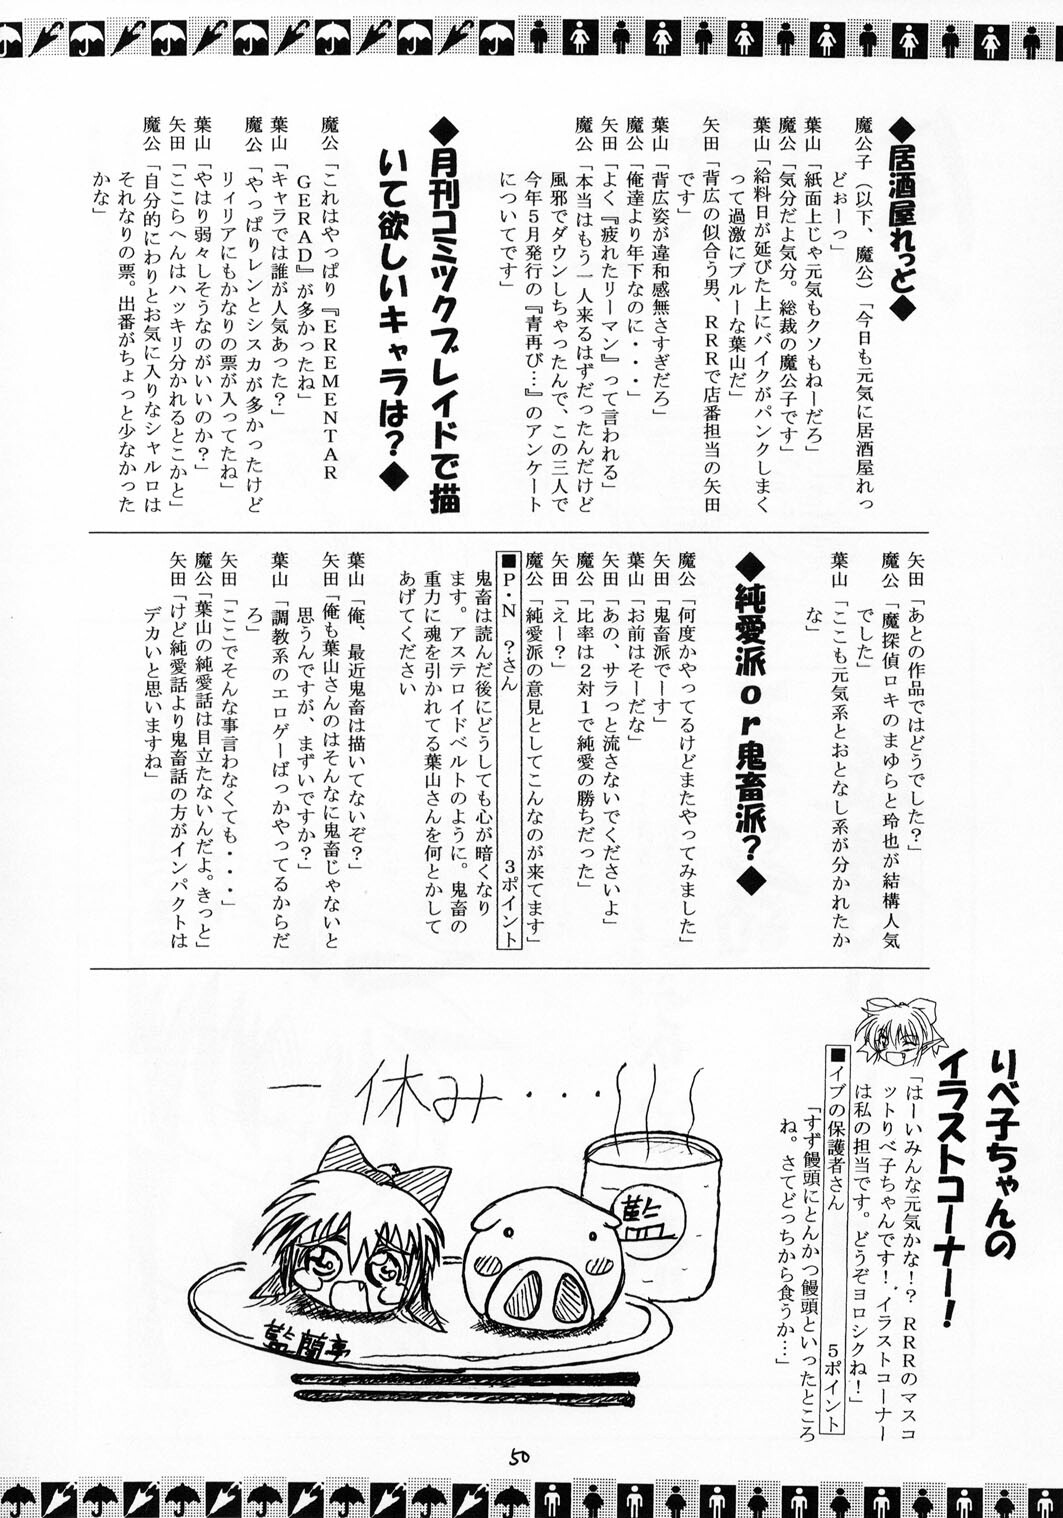 ◆居酒屋れっど◆
魔公子（以下、魔公）「今日も元気に居酒屋れっ
どぉーっ」
葉山「紙面上じゃ元気もクソもねーだろ」
魔公「気分だよ気分。総裁の魔公子です」
葉山「給料日が延びた上にバイクがパンクしまく
って過激にブルーな葉山だ」
矢田「背広の似合う男、ＲＲＲで店番担当の矢田
です」
葉山「背広姿が違和感無さすぎだろ」
魔公「俺達より年下なのに・・・」
矢田「よく『疲れたリーマン』って言われる」
魔公「本当はもう一人来るはずだったんだけど
風邪でダウンしちゃったんで、この三人で
今年５月発行の『青再び…』のアンケート
についてです」
◆月刊コミックブレイドで描
いて欲しいキャラは？◆
魔公「これはやっぱり『ＥＲＥＭＥＮＴＡＲ
ＧＥＲＡＤ』が多かったね」
葉山「キャラでは誰が人気あった？」
魔公「やっぱりレンとシスカが多かったけど
リィリアにもかなりの票が入ってたね」
葉山「やはり弱々しそうなのがいいのか？」
矢田「ここらへんはハッキリ分かれるとこかと」
魔公「自分的にわりとお気に入りなシャルロは
それなりの票。出番がちょっと少なかった
かな」
矢田「あとの作品ではどうでした？」
魔公「魔探偵ロキのまゆらと玲也が結構人気
でした」
葉山「ここも元気系とおとなし系が分かれたか
な」
◆純愛派ｏｒ鬼畜派？◆
魔公「何度かやってるけどまたやってみました」
矢田「鬼畜派でーす」
葉山「お前はそーだな」
矢田「あの、サラっと流さないでくださいよ」
魔公「比率は２対１で純愛の勝ちだった」
矢田「えー？」
魔公「純愛派の意見としてこんなのが来てます」
■Ｐ・Ｎ　？さん　３ポイント
鬼畜は読んだ後にどうしても心が暗くなり
ます。アステロイドベルトのように。鬼畜の
重力に魂を引かれてる葉山さんを何とかして
あげてください
葉山「俺、最近鬼畜は描いてないぞ？」
矢田「俺も葉山さんのはそんなに鬼畜じゃないと
思うんですが、まずいですか？」
葉山「調教系のエロゲーばっかやってるからだ
ろ」
矢田「ここでそんな事言わなくても・・・」
魔公「葉山の純愛話は目立たないんだよ。きっと」
矢田「けど純愛話より鬼畜話の方がインパクトは
デカいと思いますね」
りべ子ちゃんの
イラストコーナー！
「はーいみんな元気かな！？ＲＲＲのマスコ
ットりべ子ちゃんです！イラストコーナー
は私の担当です。どうぞヨロシクね！」
■イブの保護者さん　５ポイント
「すず饅頭にとんかつ饅頭といったところ
ね。さてどっちから食うか…」
一休み・・・
藍
藍蘭亭
50